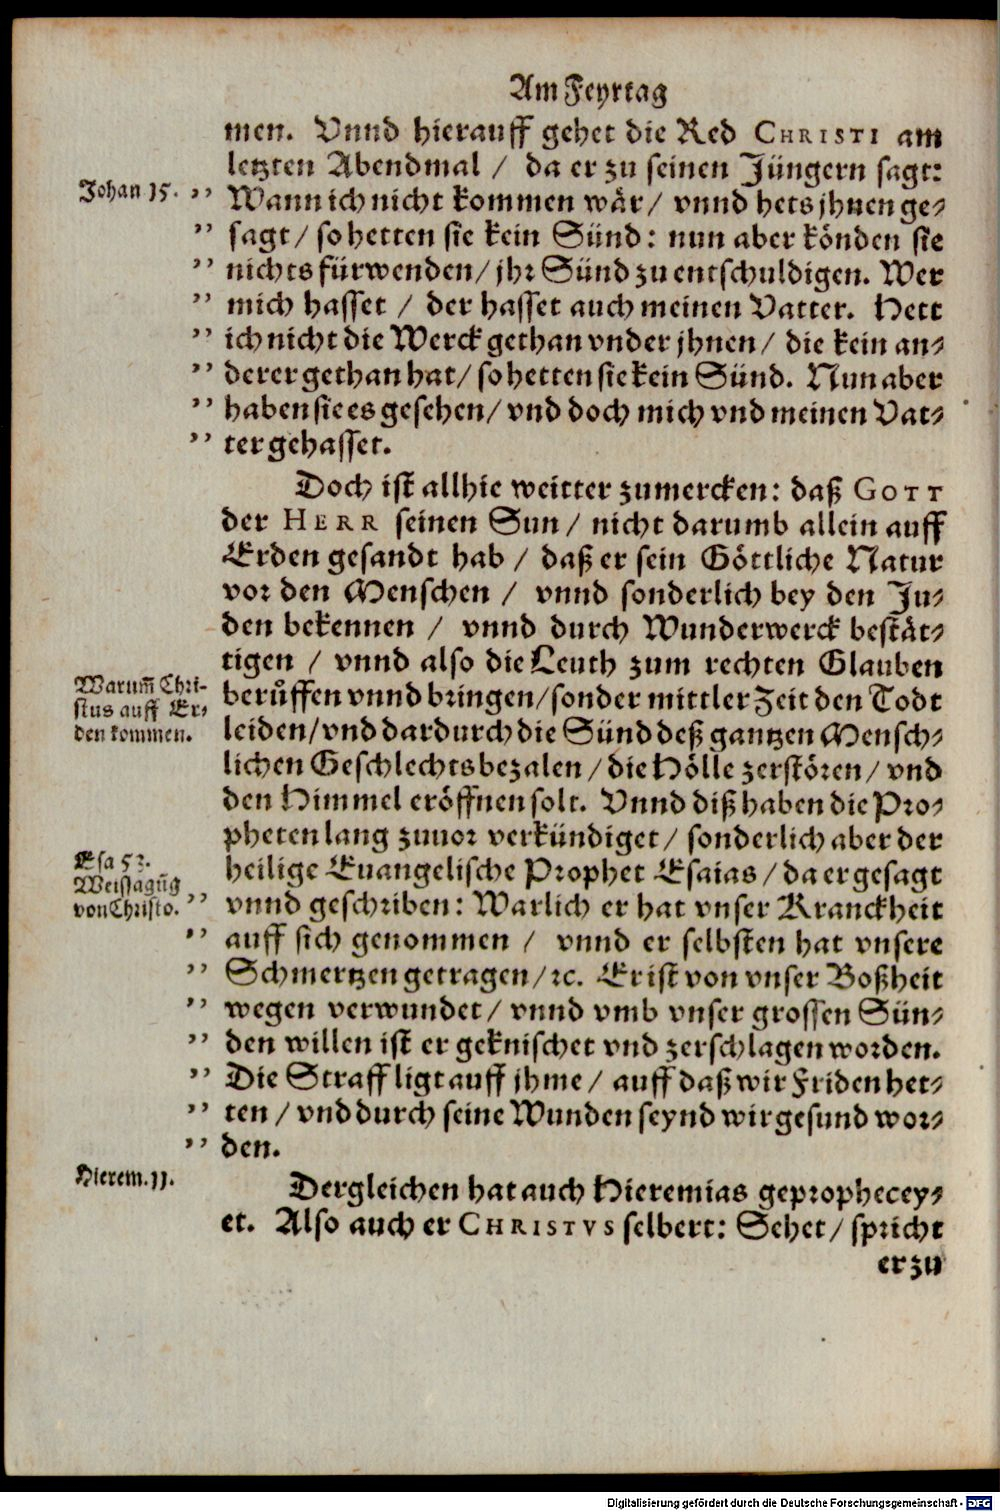 Am Feyrtag
men. Vnnd hierauff gehet die Red CHRISTI am
letzten Abendmal / da er zu seinen Jüngern sagt:
Johan 15.
" Wann ich nicht kommen wär / vnnd hets jhnen ge-
" sagt / so hetten sie kein Sünd: nun aber könden sie
" nichts fürwenden / jhr Sünd zu entschuldigen. Wer
" mich hasset / der hasset auch meinen Vatter. Hett
" ich nicht die Werck gethan vnder jhnen / die kein an-
" derer gethan hat / so hetten sie kein Sünd. Nun aber
" haben sie es gesehen / vnd doch mich vnd meinen Vat-
" ter gehasset.
Doch ist allhie weitter zumercken: daß GOTT
der HERR seinen Sun / nicht darumb allein auff
Erden gesandt hab / daß er sein Göttliche Natur
vor den Menschen / vnnd sonderlich bey den Ju-
den bekennen / vnnd durch Wunderwerck bestät-
tigen / vnnd also die Leuth zum rechten Glauben
Warum̃ Chri-
stus auff Er-
den kommen.
berůffen vnnd bringen / sonder mittler Zeit den Todt
leiden / vnd dardurch die Sünd deß gantzen Mensch-
lichen Geschlechts bezalen / die Hölle zerstören / vnd
den Himmel eröffnen solt. Vnnd diß haben die Pro-
pheten lang zuuor verkündiget / sonderlich aber der
Esa 53.
Weissagũg
von Christo.
heilige Euangelische Prophet Esaias / da er gesagt
" vnnd geschriben: Warlich er hat vnser Kranckheit
" auff sich genommen / vnnd er selbsten hat vnsere
" Schmertzen getragen / ꝛc. Er ist von vnser Boßheit
" wegen verwundet / vnnd vmb vnser grossen Sün-
" den willen ist er geknischet vnd zerschlagen worden.
" Die Straff ligt auff jhme / auff daß wir Friden het-
" ten / vnd durch seine Wunden seynd wir gesund wor-
" den.
Hierem. 11.
Dergleichen hat auch Hieremias geprophecey-
et. Also auch er CHRISTVS selbert: Sehet / spricht
er zu
Digitalisierung gefördert durch die Deutsche Forschungsgemeinschaft - DFG